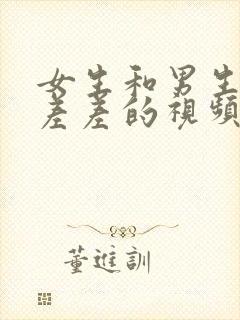 女生和男生
差差的視頻
董進訓